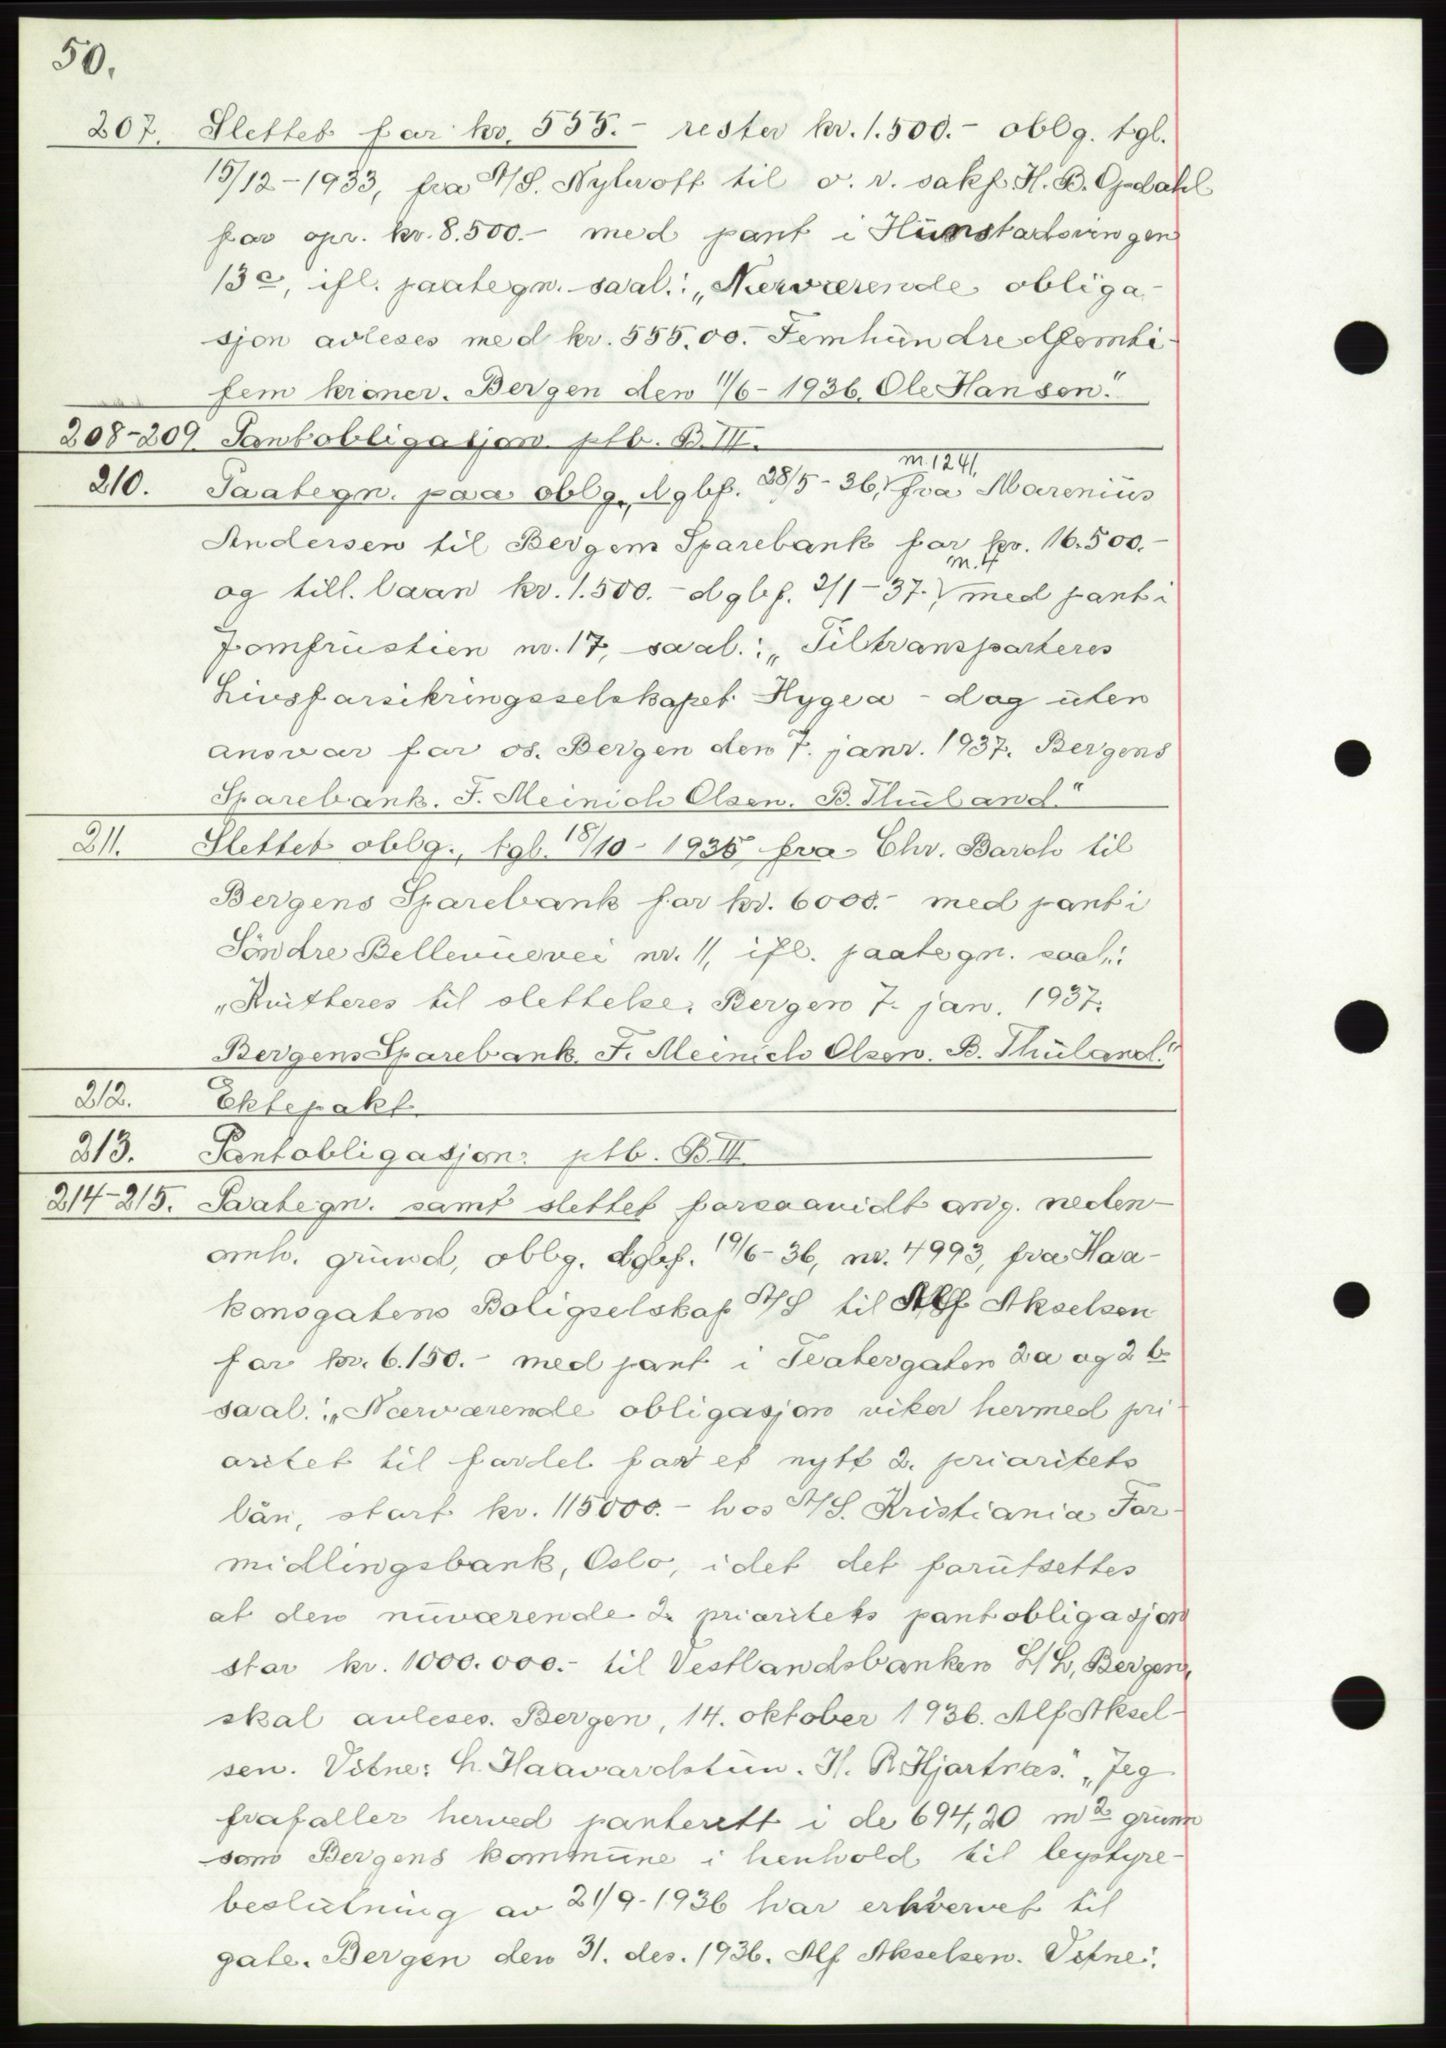 50.
207. Slettet for kr. 555.- rester kr. 1.500.- oblg. tgl.
15/12-1933, fra A/S. Nybrott til o. r. sakf. H. B. Opdahl
for opr. kr. 8.500.- med pant i Hunstadsvingen
13c, ifl. paategn. saal.: „Nærværende obliga-
sjon avleses med kr. 555.00.- Femhundredfemti-
fem kroner. Bergen den 11/6-1936. Ole Hansen."
208-209. Pantobligasjon ptb. B.III.
210. Paategn. paa oblg., dgbf. 28/5-36, m. 1241, fra Marenius
Andersen til Bergens Sparebank for kr. 16.500.-
og till. laan kr. 1.500.- dgbf. 2/1-37. m. 4 med pant i
Jomfrustien nr. 17, saal.: „Tiltransporteres
Livsforsikringsselskapet Hygea - dog uten
ansvar for os. Bergen den 7. janr. 1937. Bergens
Sparebank. F. Meinich Olsen. B. Thuland."
211. Slettet oblg., tgl. 18/10-1935 fra Chr. Barch til
Bergens Sparebank for kr. 6000.- med pant i
Söndre Bellevuevei nr. 11, ifl. paategn. saal.:
„Kvitteres til slettelse. Bergen 7. jan. 1937.
Bergens Sparebank. F. Meinich Olsen. B. Thuland."
212. Ektepakt.
213. Pantobligasjon. ptb. B III
214-215. Paategn. samt slettet forsaavidt ang. neden-
omh. grund, oblg. dgbf. 19/6-36, nr. 4993, fra Haa-
konsgatens Boligselskap A/S til Alf Akselsen
for kr. 6.150.- med pant i Teatergaten 2a og 2 b
saal.: „Nærværende obligasjon viker hermed pri-
oritet til fordel for et nytt 2. prioritets
lån, stort kr. 115000.- hos A/S. Kristiania For-
midlingsbank, Oslo, idet det forutsettes
at den nuværende 2. prioritets pantobligasjon
stor kr. 1000.000.- til Vestlandsbanken L/L, Bergen,
skal avleses. Bergen, 14. oktober 1936. Alf Aksel-
sen. Vitne: L. Haavardstun. H. R. Hjartnæs." „Jeg
frafaller herved panterett i de 694,20 m2 grunn
som Bergens kommune i henhold til bystyre-
beslutning av 21/9-1936 har erhvervet til
gate. Bergen den 31. des. 1936. Alf Akselsen. Vitne: